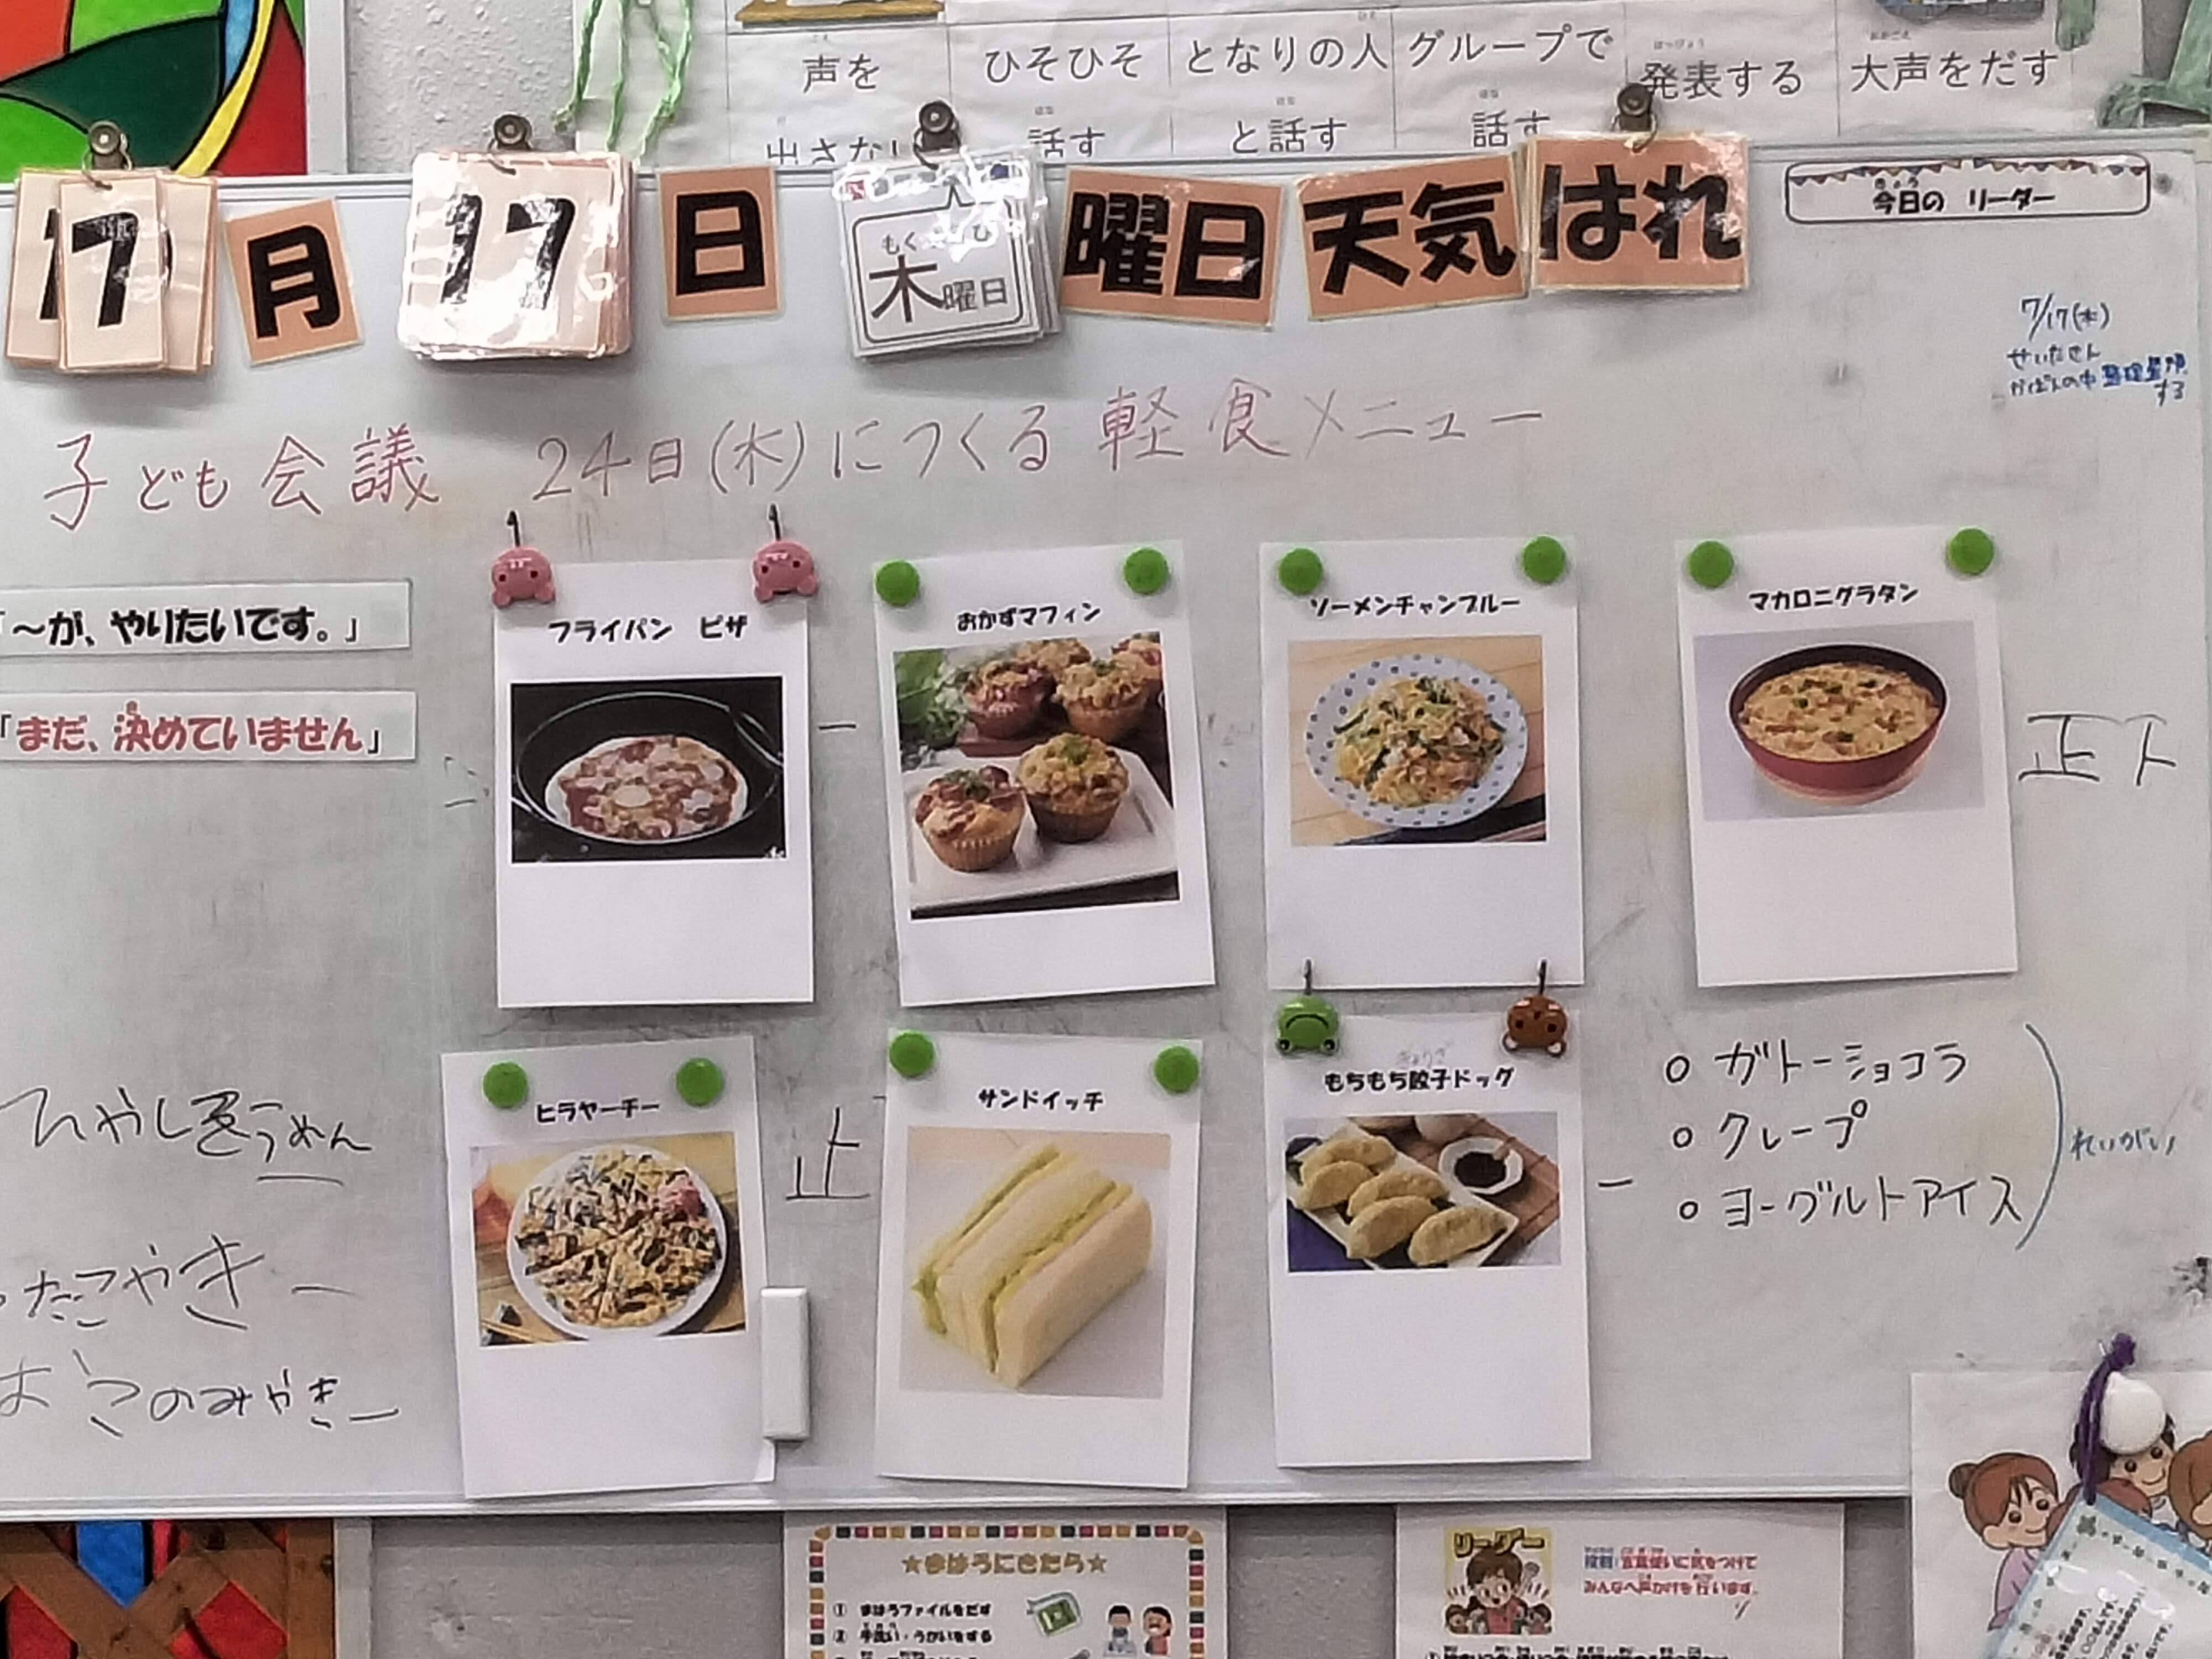 声を
出さない
ひそひそ
話す
となりの人
と話す
グループで
話す
発表する
大声をだす
7月17日 木曜日 曜日 天気 はれ
今日の リーダー
7/17(木)
せいたさん
かばんの中整理整頓
する
子ども会議 24日(木)につくる軽食メニュー
「〜が、やりたいです。」
「まだ、決めていません」
フライパン ピザ
おかずマフィン
一
ソーメンチャンプルー
マカロニグラタン
正ト
ひやしそうめん
たこやき 一
おこのみやき 一
ヒラヤーチー
止
サンドイッチ
もちもち餃子ドッグ
一
○ ガトーショコラ
○ クレープ
○ ヨーグルトアイス
れいがい
★まほうにきたら★
① まほうファイルをだす
② 手洗い・うがいをする
リーダー
役割:言葉使いに気をつけて
みんなへ声かけを行います。